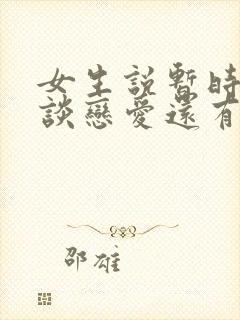 女生說暫時
談戀愛還有
邵雄